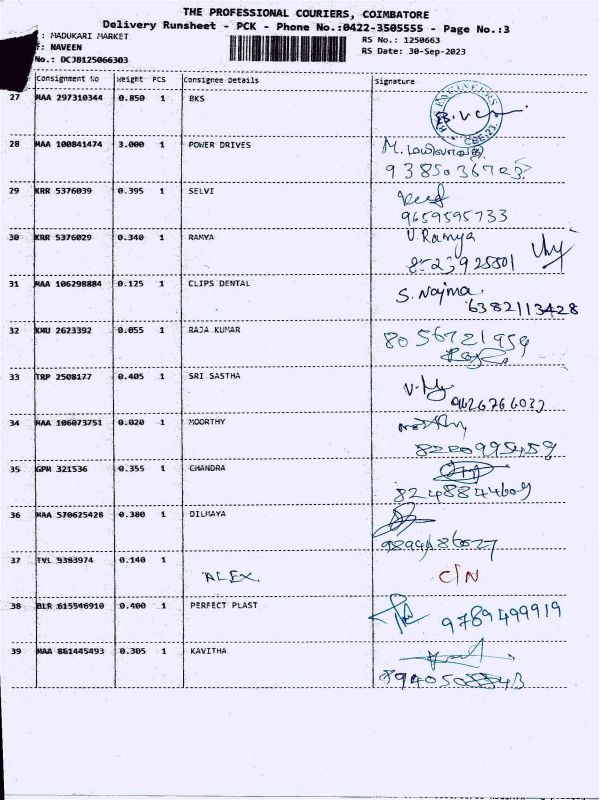 THE PROFESSIONAL COURIERS, COIMBATORE
Delivery Runsheet - PCK - Phone No.:0422-3505555 - Page No.:3
: MADUKARI MARKET RS No.: 1250663
: NAVEEN RS Date: 30-Sep-2023
No.: DCJB125066303
Consignment No Weight PCS Consignee Details Signature
27 MAA 297310344 0.850 1 BKS
ENGINEERS
28 MAA 100841474 3.000 1 POWER DRIVES
M.
29 KRR 5376039 0.395 1 SELVI
9659595733
30 KRR 5376029 0.340 1 RAMYA V. Ramya
31 MAA 106298884 0.125 1 CLIPS DENTAL S. Najma
6382113428
32 KMU 2623392 0.055 1 RAJA KUMAR 8056721959
33 TRP 2508177 0.405 1 SRI SASTHA
34 MAA 106073751 0.020 1 MOORTHY
8220995459
35 GPM 321536 0.355 1 CHANDRA
8248844609
36 MAA 570625428 0.380 1 DILMAYA
37 TVL 9383974 0.140 1
ALEX. C/N
38 BLR 615546910 0.400 1 PERFECT PLAST
9789499919
39 MAA 861445493 0.305 1 KAVITHA